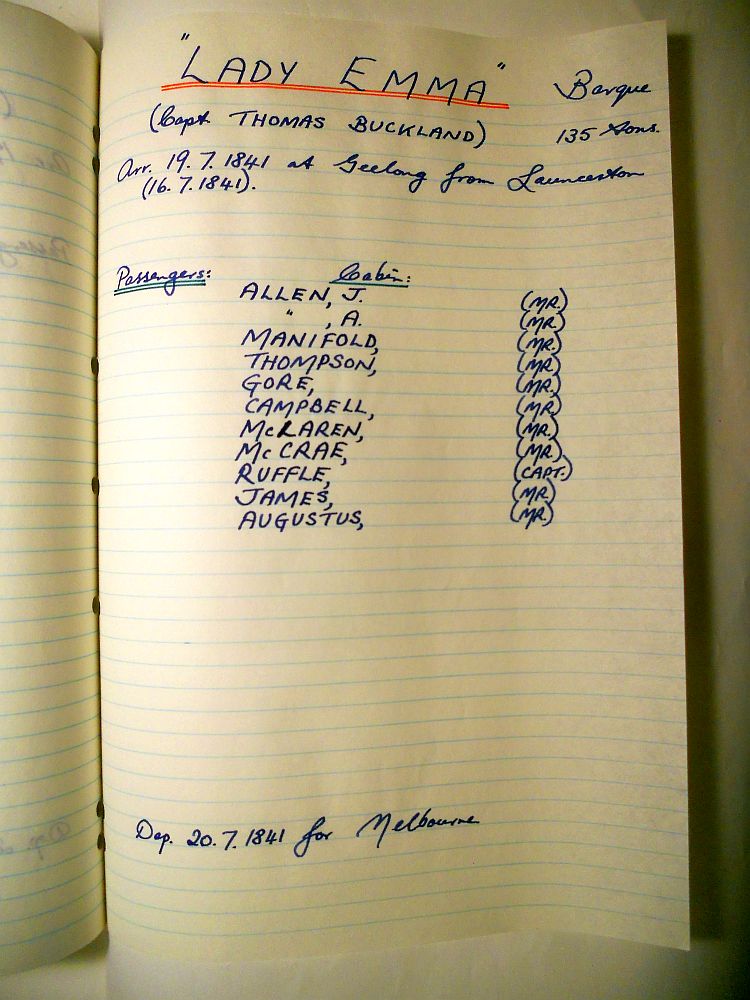 "LADY EMMA" Barque
(Capt THOMAS BUCKLAND) 135 tons.
Arr. 19.7.1841 at Geelong from Launceston
(16.7.1841).
Passengers: Cabin:
ALLEN, J. (MR.)
" , A. (MR.)
MANIFOLD, (MR.)
THOMPSON, (MR.)
GORE, (MR.)
CAMPBELL, (MR.)
McLAREN, (MR.)
McCRAE, (MR.)
RUFFLE, (CAPT.)
JAMES, (MR.)
AUGUSTUS, (MR.)
Dep. 20.7.1841 for Melbourne